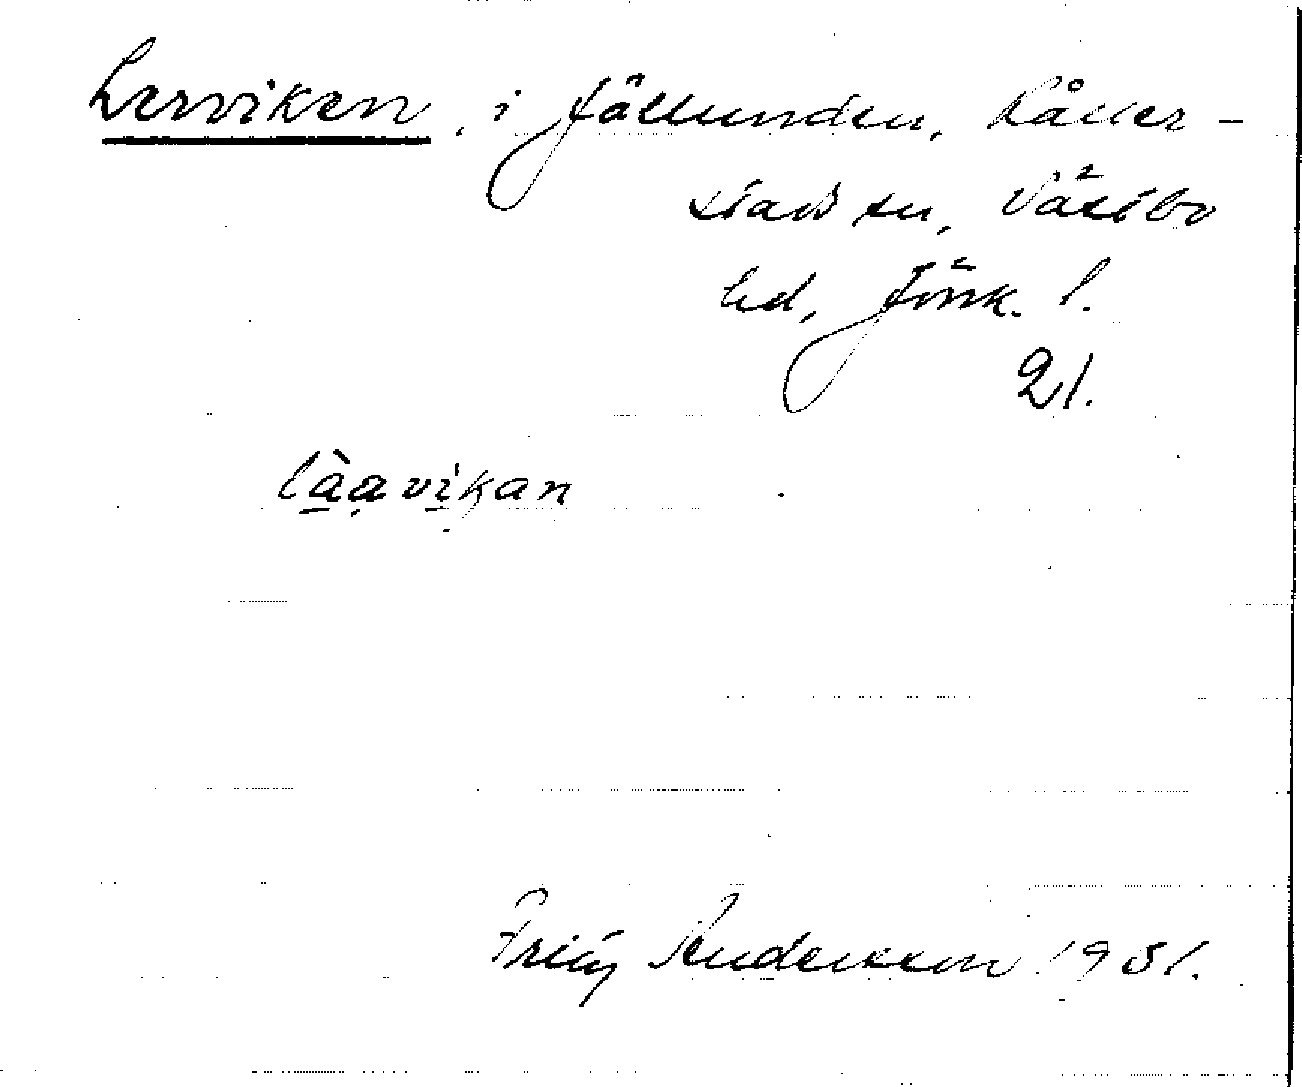 Lerviken, i Jällunden, Kåller-
stads sn, Västbo
hd, Jönk. l.
21.
làavikan
Fritz Andersson 1931.